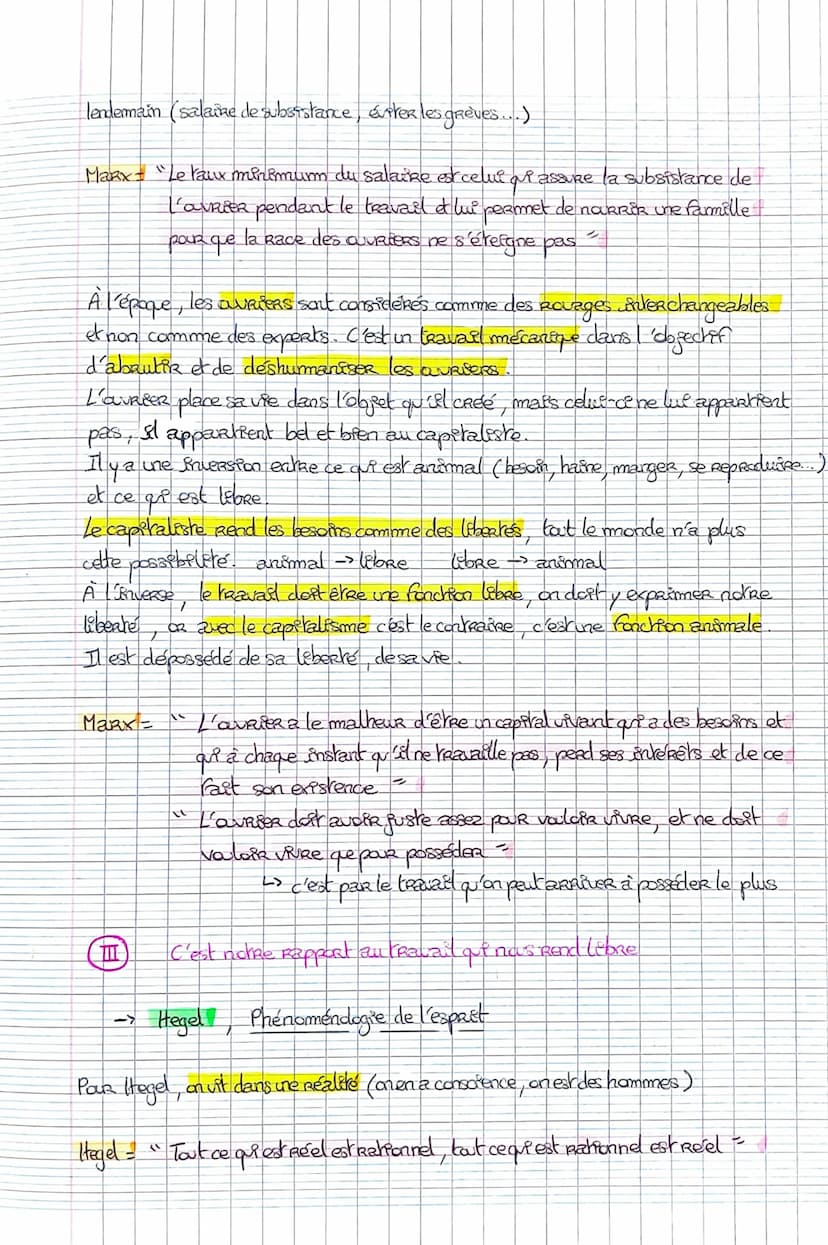 lendemain (salaire de subsistance, éviter les grèves...)
Marx = " Le taux minimum du salaire est celui qui assure la subsistance de
l'ouvrier pendant le travail et lui permet de nourrir une famille
pour que la race des ouvriers ne s'éteigne pas "
À l'époque, les ouvriers sont considérés comme des rouages interchangeables
et non comme des experts. C'est un travail mécanique dans l'objectif
d'abrutir et de déshumaniser les ouvriers.
L'ouvrier place sa vie dans l'objet qu'il créé, mais celui-ci ne lui appartient
pas, il appartient bel et bien au capitaliste.
Il y a une inversion entre ce qui est animal (besoin, haine, manger, se reproduire...)
et ce qui est libre.
Le capitaliste rend les besoins comme des libertés, tout le monde n'a plus
cette possibilité. animal → libre libre → animal
À l'inverse, le travail doit être une fonction libre, on doit y exprimer notre
liberté, or avec le capitalisme c'est le contraire, c'est une fonction animale.
Il est dépossédé de sa liberté, de sa vie.
Marx = " L'ouvrier a le malheur d'être un capital vivant qui a des besoins et
qui à chaque instant qu'il ne travaille pas, perd ses intérêts et de ce
fait son existence "
" L'ouvrier doit avoir juste assez pour vouloir vivre, et ne doit
vouloir vivre que pour posséder "
↳ c'est par le travail qu'on peut arriver à posséder le plus
III C'est notre rapport au travail qui nous rend libre
→ Hegel, Phénoménologie de l'esprit
Pour Hegel, on vit dans une réalité (on en a conscience, on est des hommes)
Hegel = " Tout ce qui est réel est rationnel, tout ce qui est rationnel est réel "